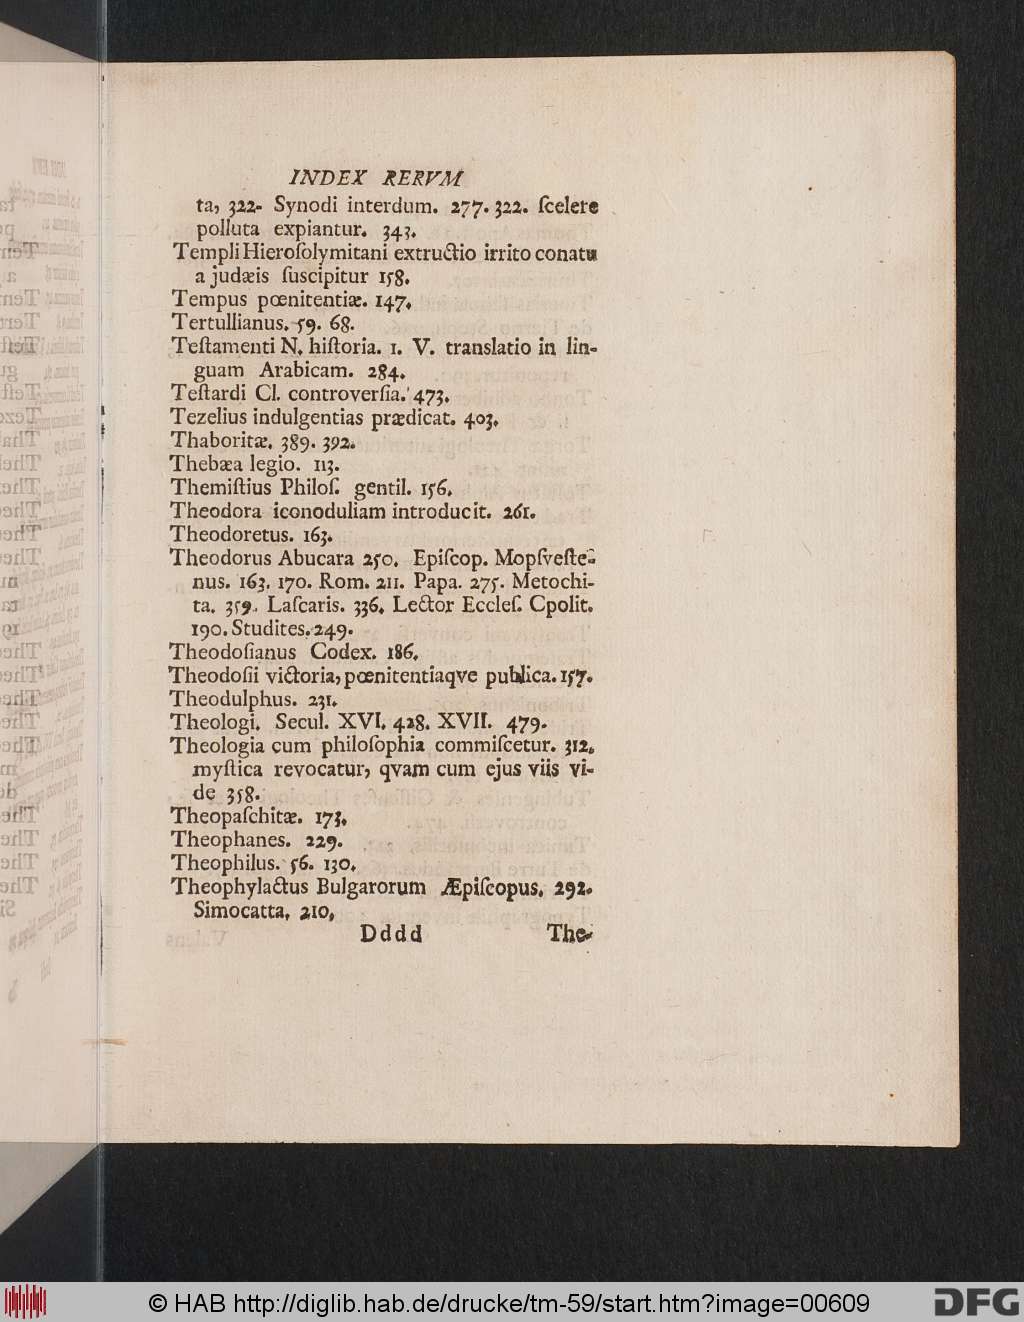 INDEX RERVM
ta, 322. Synodi interdum. 277. 322. ſcelere
polluta expiantur. 343.
Templi Hieroſolymitani extructio irrito conatu
a judæis ſuscipitur 158.
Tempus pœnitentiæ. 147.
Tertullianus. 59. 68.
Teſtamenti N. hiſtoria. 1. V. translatio in lin-
guam Arabicam. 284.
Teſtardi Cl. controverſia. 473.
Tezelius indulgentias prædicat. 403.
Thaboritæ. 389. 392.
Thebæa legio. 113.
Themiſtius Philoſ. gentil. 156.
Theodora iconoduliam introducit. 261.
Theodoretus. 163.
Theodorus Abucara 250. Epiſcop. Mopſveſte-
nus. 163. 170. Rom. 211. Papa. 275. Metochi-
ta. 359. Laſcaris. 336. Lector Eccleſ. Cpolit.
190. Studites. 249.
Theodoſianus Codex. 186.
Theodoſii victoria, pœnitentiaqve publica. 157.
Theodulphus. 231.
Theologi. Secul. XVI. 428. XVII. 479.
Theologia cum philoſophia commiſcetur. 312.
myſtica revocatur, qvam cum ejus viis vi-
de 358.
Theopaſchitæ. 173.
Theophanes. 229.
Theophilus. 56. 130.
Theophylactus Bulgarorum Æpiſcopus. 292.
Simocatta. 210.
Dddd The-
© HAB http://diglib.hab.de/drucke/tm-59/start.htm?image=00609
DFG